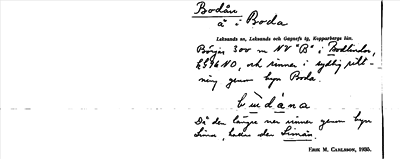 Bodån
å i Boda
Leksands sn, Leksands och Gagnefs tg, Kopparbergs län.
Börjar 300 m NV "B" i Bodtindor,
NO, och rinner i sydlig rikt-
ning genom byn Boda.
bùdåna
Då den längre ner rinner genom byn
Lima, heter den Limån.
ERIK M. CARLSSON, 1935.